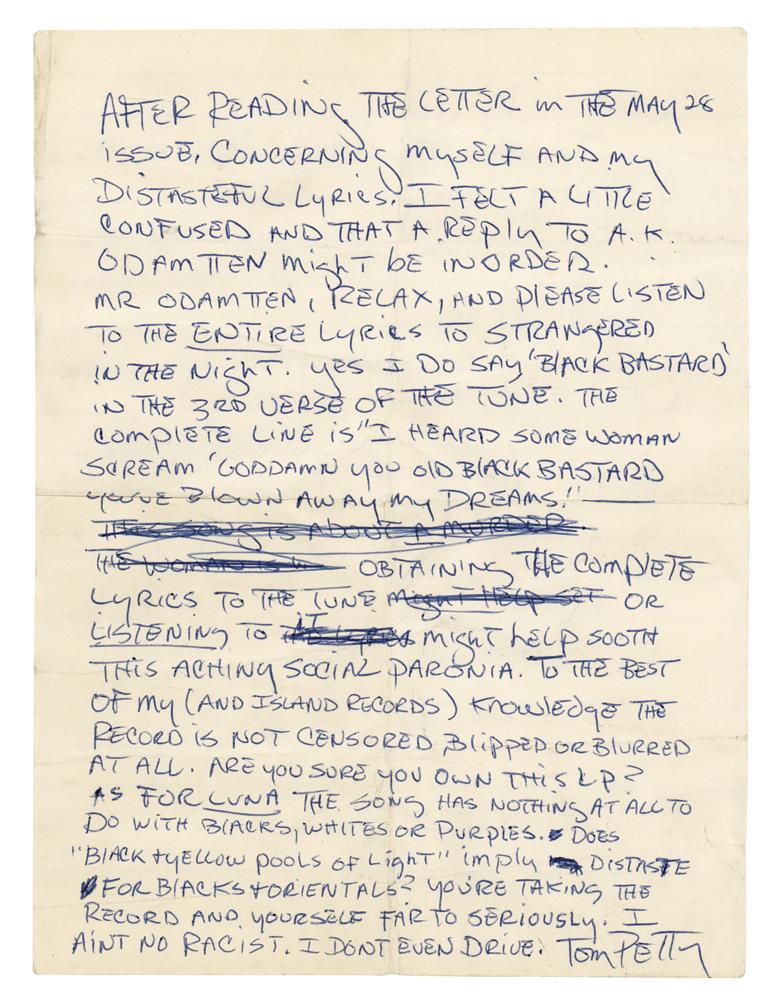 AFTER READING THE LETTER in THE MAY 28
ISSUE, CONCERNING MYSELF AND MY
DISTASTEFUL LYRICS. I FELT A LITTLE
CONFUSED AND THAT A REPLY TO A.K.
ODAMTTEN MIGHT BE IN ORDER.
MR ODAMTTEN, RELAX, AND PLEASE LISTEN
TO THE ENTIRE LYRICS TO STRANGERED
IN THE NIGHT. YES I DO SAY 'BLACK BASTARD'
IN THE 3RD VERSE OF THE TUNE. THE
COMPLETE LINE IS "I HEARD SOME WOMAN
SCREAM 'GODDAMN YOU OLD BLACK BASTARD
YOU'VE BLOWN AWAY MY DREAMS!"
THIS SONG IS ABOUT A MURDER.
THE WOMAN IS OBTAINING THE COMPLETE
LYRICS TO THE TUNE MIGHT HELP SET OR
LISTENING TO IT MIGHT HELP SOOTH
THIS ACHING SOCIAL PARONIA. TO THE BEST
OF MY (AND ISLAND RECORDS) KNOWLEDGE THE
RECORD IS NOT CENSORED BLIPPED OR BLURRED
AT ALL. ARE YOU SURE YOU OWN THIS LP?
AS FOR LUNA THE SONG HAS NOTHING AT ALL TO
DO WITH BLACKS, WHITES OR PURPLES. DOES
"BLACK + YELLOW POOLS OF LIGHT" IMPLY DISTASTE
FOR BLACKS + ORIENTALS? YOU'RE TAKING THE
RECORD AND YOURSELF FAR TO SERIOUSLY. I
AINT NO RACIST. I DONT EVEN DRIVE. TOM PETTY